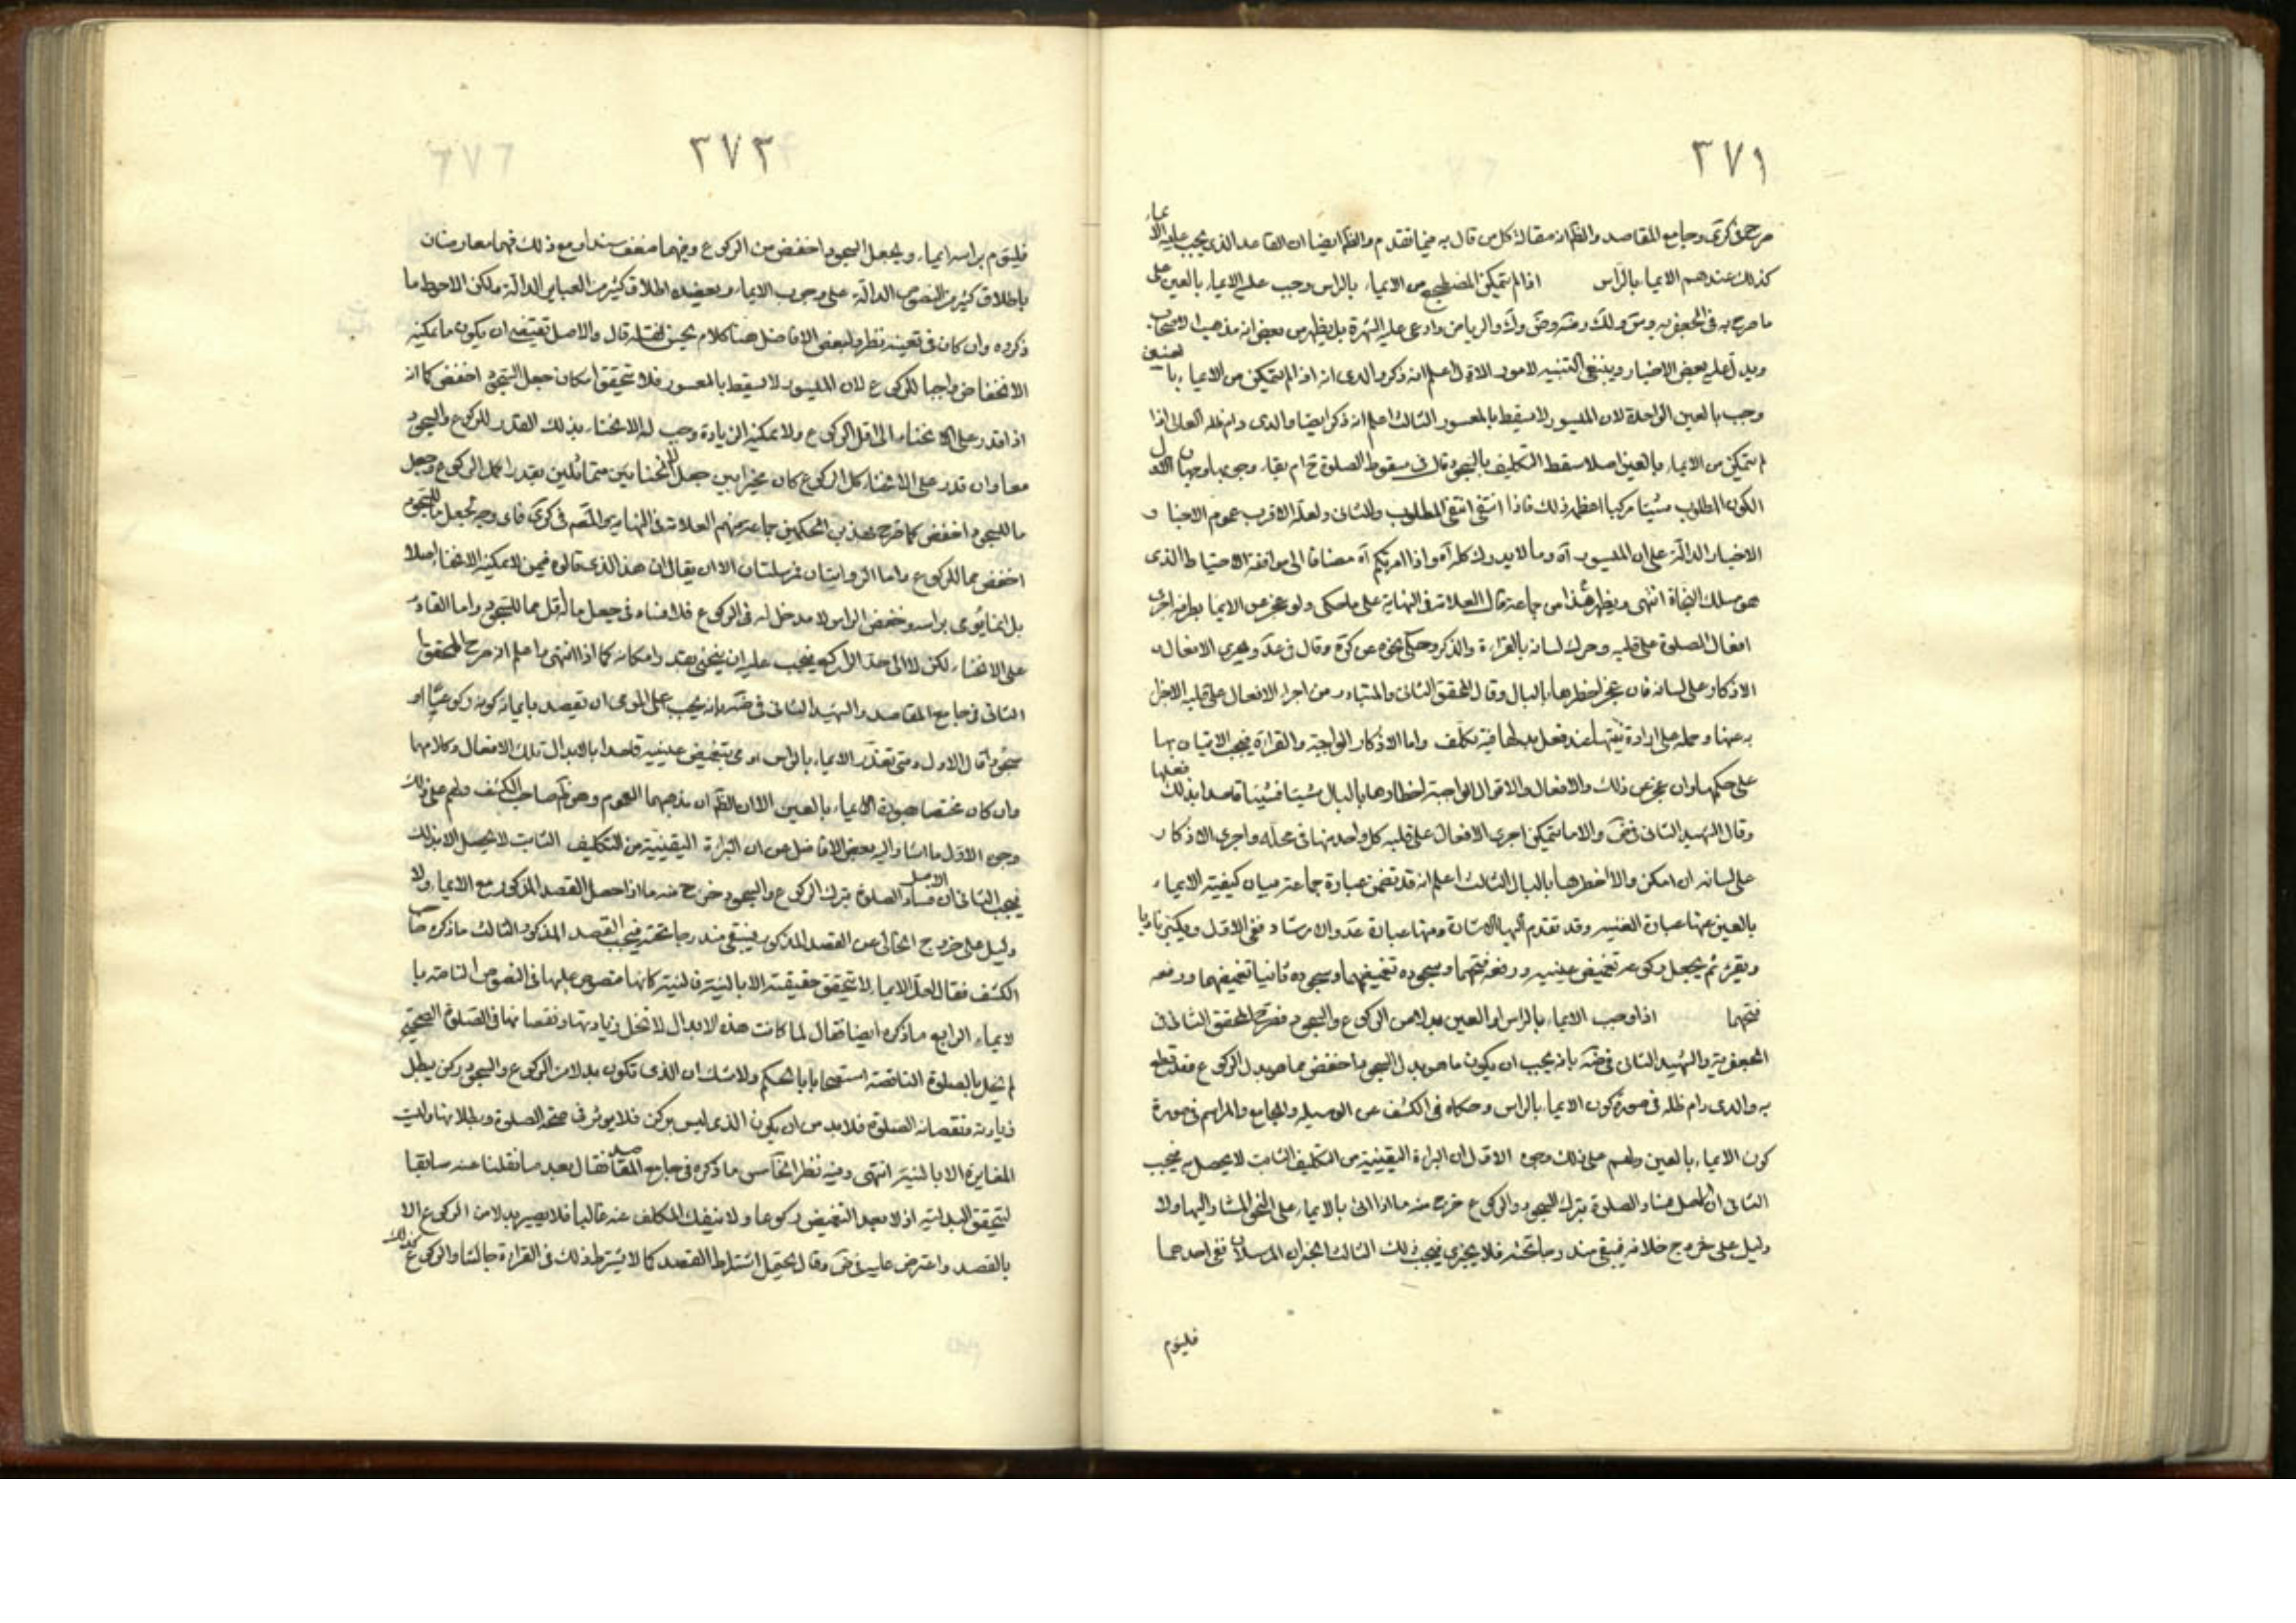 ٣٧١
صرح في كرى وجامع المقاصد والظم ان مقالة كل من قال به فيما تقدم والظم ايضا ان القاعد الذي يجب عليه الايماء
كذلك عندهم الايماء بالراس اذا لم يتمكن المضطجع من الايماء بالراس وجب عليه الايماء بالعين على
ما صرح به في الجعفريه والرياض وادعى عليه الشهرة بل يظهر من بعض انه مذهب الاصحاب
ويدل عليه بعض الاخبار وينبغي التنبيه لامور الاول اعلم انه ذكر والدى انه اذا لم يتمكن من الايماء بالعينين
وجب بالعين الواحدة لان الميسور لا يسقط بالمعسور الثالث اعلم انه ذكر ايضا والدى دام ظله العالى اذا
لم يتمكن من الايماء بالعين اصلا سقط التكليف بالسجود قال فى سقوط الصلوة ح ام بقاء وجوبها وجهان الاول
لكون المطلوب شيئا مركبا اعظم ذلك فاذا انتفى انتفى المطلوب والثانى ولعله الاقرب عموم الاخبار و
الاخبار الدالة على ان الميسور آه وما لا يدرك كله آه واذا امرتكم آه مضافا الى موافقة الاحتياط الذى
هو مسلك النجاة انتهى ويظهر هذا من جماعة قال العلامة فى النهاية على ما حكى ولو عجز عن الايماء بطرفه اجرى
افعال الصلوة على قلبه وحرك لسانه بالقراءة والذكر وحكى نحوه عن كرة وقال فى عد ويجرى الافعال و
الاذكار على لسانه فان عجز اخطرها بالبال وقال المحقق الثانى والمتبادر من اجراء الافعال على قلبه الاجزاء
به عنها وحمله على ارادة نيتها عند فعل بدلها فيه تكلف واما الاذكار الواجبة والقراءة فيجب الاتيان بها
على حكمها وان عجز عن ذلك والافعال والاقوال الواجبة اخطارها بالبال شيئا فشيئا قاصدا بذلك فعلها
وقال الشهيد الثانى فى ض والا ما يتمكن اجرى الافعال على قلبه كل واحد منها فى محله واجرى الاذكار
على لسانه ان امكن والا اخطرها بالبال الثالث اعلم انه قد تضمن عبارة جماعة بيان كيفية الايماء
بالعين عنها عبارة الغنيه وقد تقدم اليها الاشارة ومنها عبارة عد والارشاد ففى الاول ويكبر ناويا
ويقرء ثم يجعل ركوعه تغميض عينيه ورفعه فتحهما وسجوده تغميضهما وسجوده ثانيا تغميضهما ورفعه
فتحهما اذا وجب الايماء بالراس او العين بدلا من الركوع والسجود فصرح المحقق الثانى فى
الجعفرية والشهيد الثانى فى ضه بانه يجب ان يكون ما هو بدل السجود اخفض مما هو بدل الركوع وقد قطع
به والدى دام ظله فى صورة كون الايماء بالراس وحكاه فى الكشف عن الوسيله والجامع والمراسم فى صورة
كون الايماء بالعين ولهم على ذلك وجوه الاول ان البراءة اليقينية من التكليف الثابت لا يحصل به فيجب
الثانى ان الاصل فساد الصلوة بترك السجود والركوع خرج منه ما اذا اتى بالايماء على النحو المشار اليها ولا
دليل على خروج خلافه فيبقى مندرجا تحته فلا يجزى فيجب ذلك الثالث الخبران المرسلان ففى احدهما
فليؤم
٣٧٢
فليؤم براسه ايماء ويجعل السجود اخفض من الركوع وفيهما ضعف سندا ومع ذلك فهما معارضان
باطلاق كثير من النصوص الدالة على وجوب الايماء ويعضده اطلاق كثير من العبائر الدالة ولكن الاحوط ما
ذكروه وان كان فى تعينه نظر ولبعض الافاضل هنا كلام يحسن نقله قال والاصل تقتضى ان يكون ما يمكنه
الانخفاض واجبا للركوع لان الميسور لا يسقط بالمعسور فلا يتحقق امكان جعل السجود اخفض كما انه
اذا قدر على الانحناء الى اقل الركوع ولا يمكنه الزيادة وجب له الانحناء بذلك القدر للركوع والسجود
معا وان قدر على الانحناء كل الركوع كان مخيرا بين جعل الانحنائين متماثلين بقدر اكمل الركوع وجعل
ما للسجود اخفض كما صرح بهذين الحكمين جماعة منهم العلامة فى النهاية والمصم فى كرى فاى وجه لجعل ما للسجود
اخفض مما للركوع واما الروايتان فمرسلتان الا ان يقال ان هذا الذى قالوه فيمن لا يمكنه الانحناء اصلا
بل انما يؤمى براسه وخفض الراس لا مدخل له فى الركوع فلا فساد فى جعل ما اقل مما للسجود واما القادر
على الانحناء لكن لا الى حد الراكع فيجب عليه ان ينحنى بقدر امكانه كما اذا انتهى واعلم انه صرح المحقق
الثانى فى جامع المقاصد والشهيد الثانى فى ضه بانه يجب على المومى ان يقصد بايمائه كونه ركوعيا او
سجود قال الاول ومتى تعذر الايماء بالراس اومى بتغميض عينيه قاصدا بالابدال تلك الافعال وكلامهما
وان كان مختصا بصورة الايماء بالعين الا ان الظم ان مذهبهما العموم وهو ظم صاحب الكشف ولهم على ذلك
وجوه الاول ما اشار اليه بعض الافاضل من ان البراءة اليقينية من التكليف الثابت لا يحصل الا بذلك
فيجب الثانى ان الاصل فساد الصلوة بترك الركوع والسجود خرج منه ما اذا حصل القصد المذكور مع الايماء ولا
دليل على خروج الخالى عن القصد المذكور فيبقى مندرجا تحته فيجب القصد المذكور الثالث ما ذكره صاحب
الكشف فقال لعل الايماء لا يتحقق حقيقته الا بالنية فالنية كانها منصوص عليها فى النصوص الناصة با
لايماء الرابع ما ذكره ايضا فقال لما كانت هذه الابدال لا تخل زيادتها ونقصانها فى الصلوة الصحيح
لم يخل بالصلوة الناقصة استصحابا بالحكم ولا شك ان الذى تكون بدلا من الركوع والسجود ركن يبطل
زيادته ونقصانه الصلوة فلا بد من ان يكون الذى ليس بركن فلا يوثر فى صحة الصلوة وبطلانها وليست
المغايرة الا بالنية انتهى وفيه نظر الخامس ما ذكره فى جامع المقاصد فقال بعد ما نقلنا عنه سابقا
ليتحقق البدلية اذ لا يعد التغميض ركوعا ولا ينفك المكلف عنه غالبا فلا يصير بدلا من الركوع الا
بالقصد واعترض عليه فى ض وقال يحتمل اشتراط القصد كما لا يشترط ذلك فى القراءة جالسا والركوع كذلك